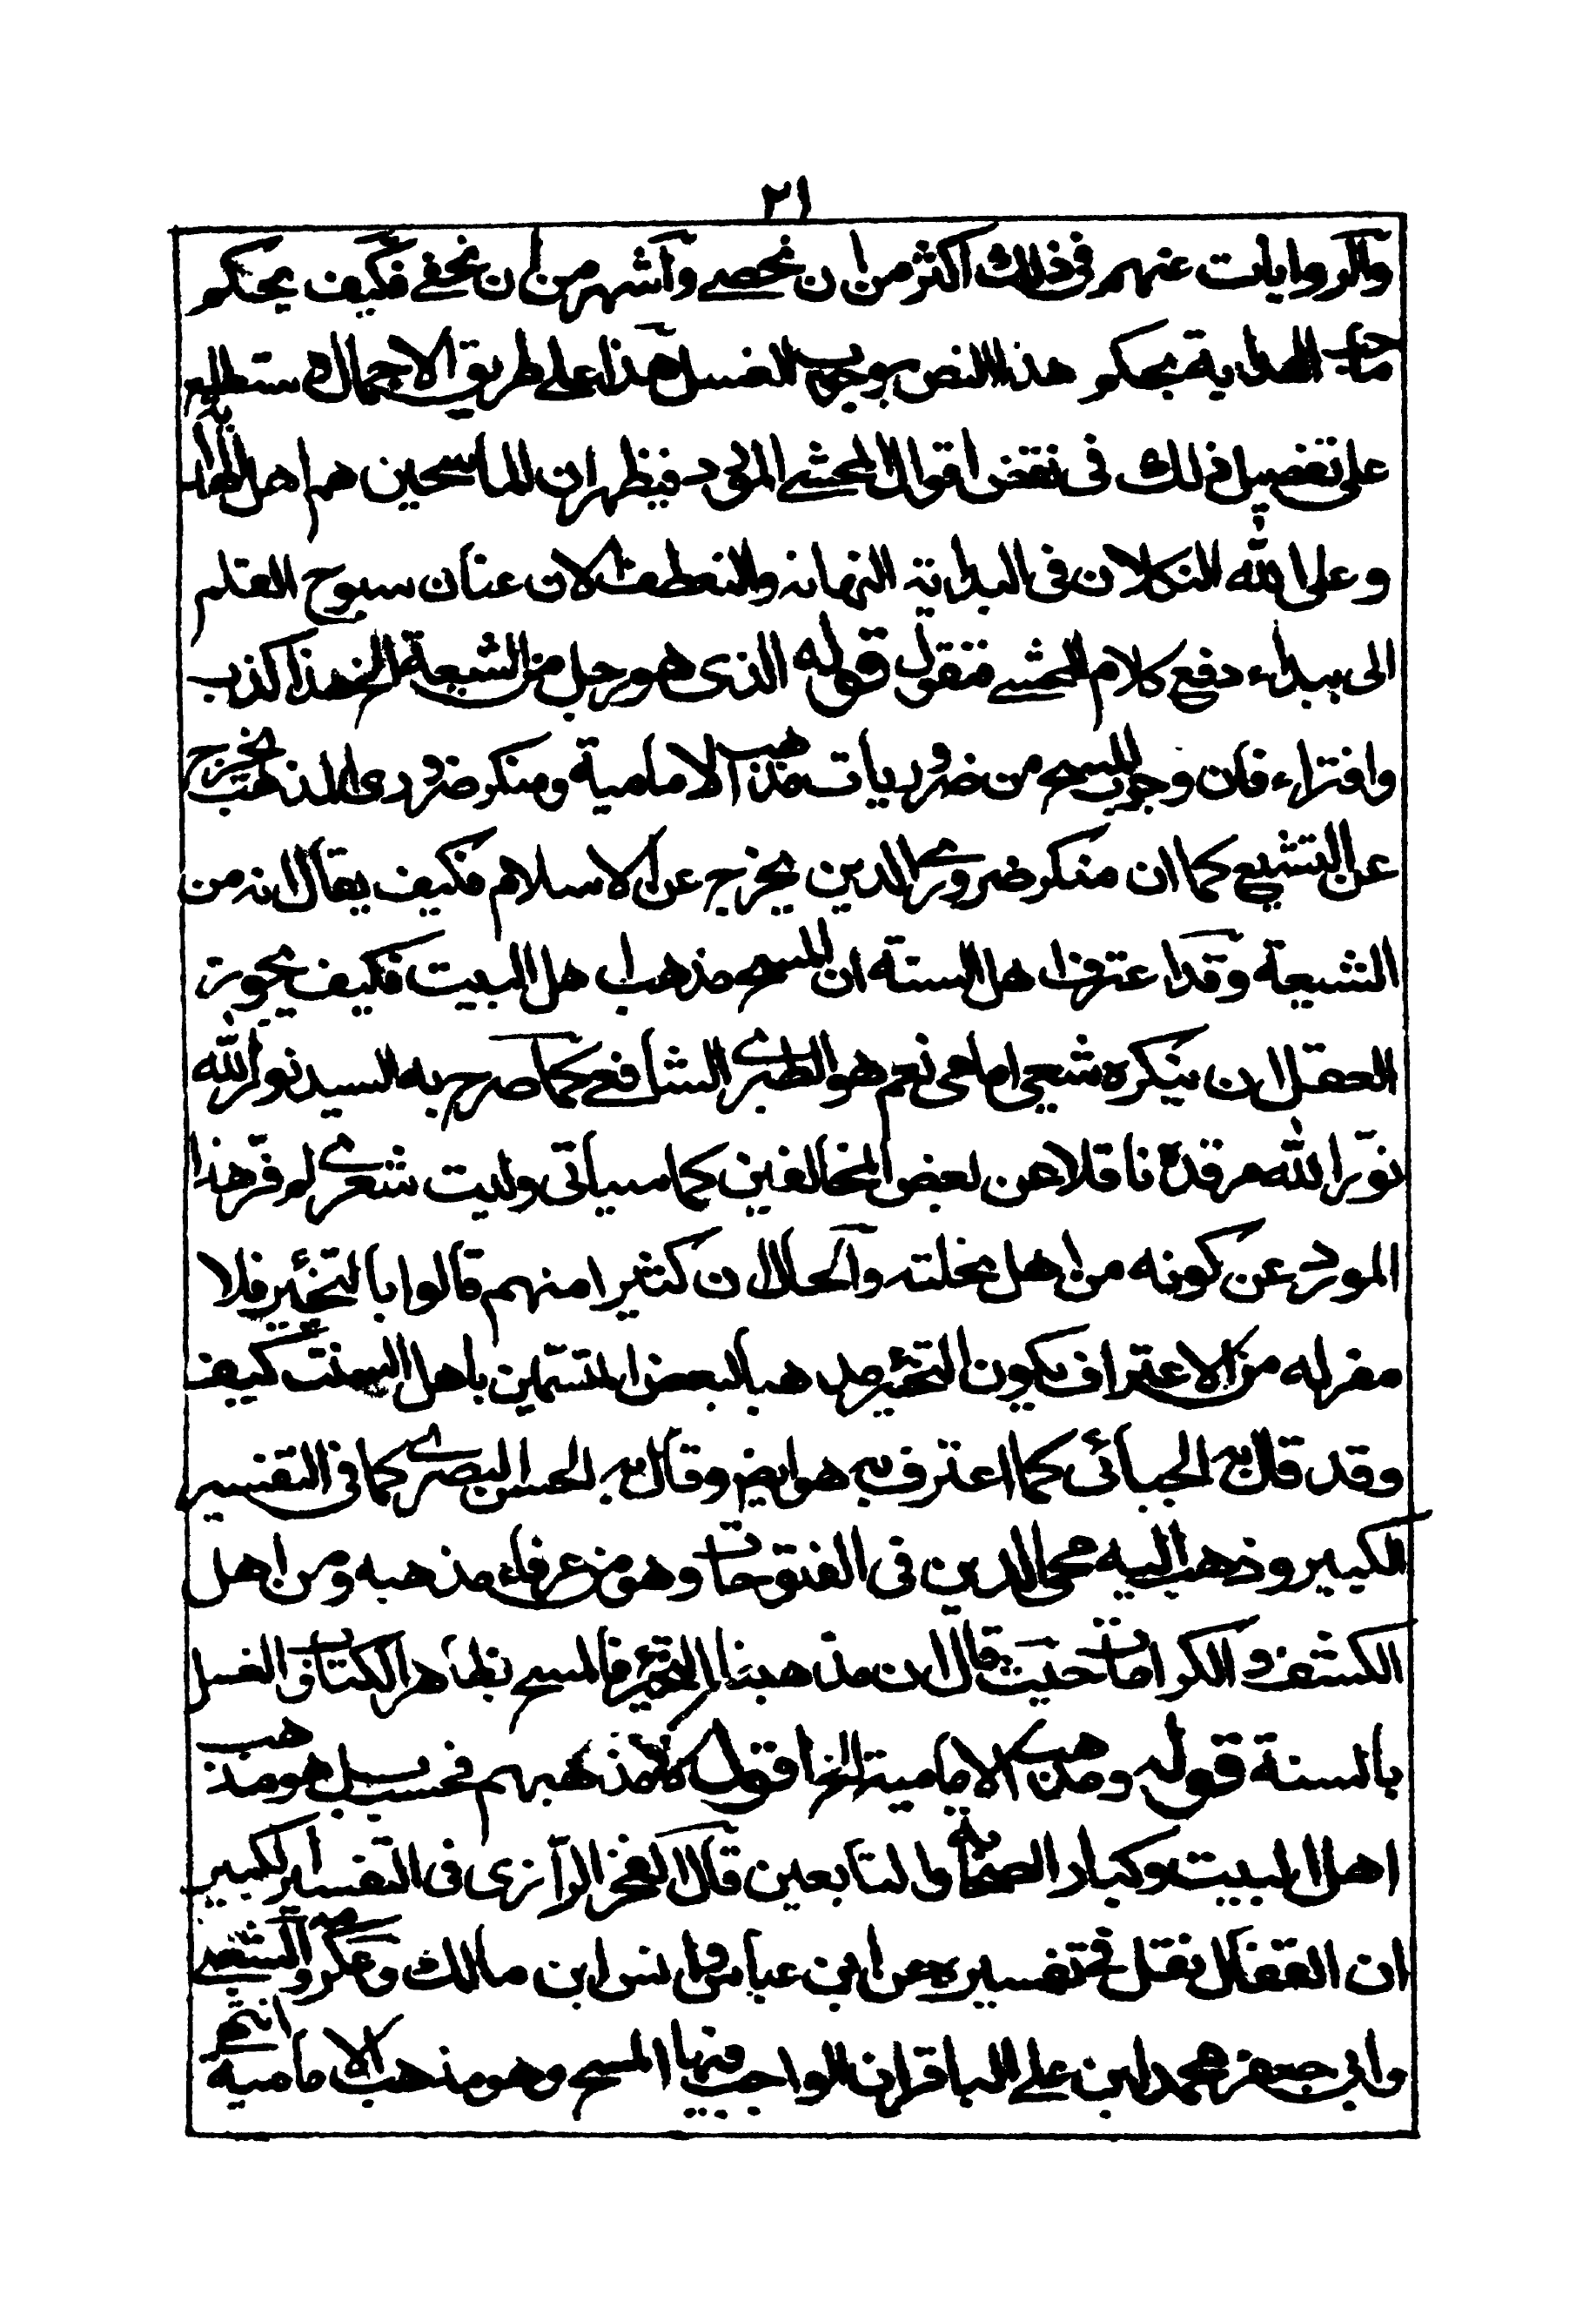 ٢١
والروايات عنهم في ذلك اكثر من ان تحصے واشهر من ان تخفے فكيف يحكم
صاحب الهداية بحكم هذا النص بوجوب الغسل هذا على طريق الاجمال وستطلع
على تفصيل ذلك فى نقض اقوال المحشے المورد فيظهر ان الماسحين هم اهل الهداية
وعلى الله التكلان فى البداية النهاية ولنعطف الان عنان سبوح القلم
الى بيداء دفع كلام المحشے فنقول قوله الذى هو رجل من الشيعة الخ هذا كذب
وافتراء فان وجوب المسح من ضروريات مذهب الامامية ومنكر ضروري المذهب يخرج
عن التشيع كما ان منكر ضروري الدين يخرج عن الاسلام فكيف يقال انه من
الشيعة وقد اعترف اهل السنة ان المسح مذهب اهل البيت فكيف يجوز
العقل ان ينكره شيعي امامي نعم هو الطبري الشافعے كما صرح به السيد نور الله
نوّر الله مرقده ناقلا من بعض المخالفين كما سيأتى وليت شعري لم فرّ هذا
المورد عن كونه من اهل نحلته والحال ان كثيرا منهم قالوا بالتخيير فلا
مفر له من الاعتراف بكون التخيير مذهبا لبعض المتسمّين باهل السنة كيف
وقد قال به الجبائى كما اعترف به هو ايضا وقال به الحسن البصري كما فى التفسير
الكبير وذهب اليه محي الدين فى الفتوحات وهو من عرفاء مذهبه ومن اهل
الكشف والكرامات حيث قال ان مذهبنا التخيير فالمسح بظاهر الكتاب والغسل
بالسنة قوله ومذهب الامامية الخ اقول لا مذهبهم فحسب بل هو مذهب
اهل البيت وكبار الصحابة والتابعين قال الفخر الرازى فى التفسير الكبير
ان القفال نقل فے تفسيره عن ابن عباس وانس ابن مالك وعكرمة والشعبے
وابى جعفر محمد ابن على الباقر ان الواجب فيها المسح وهو مذهب الامامية انتهى